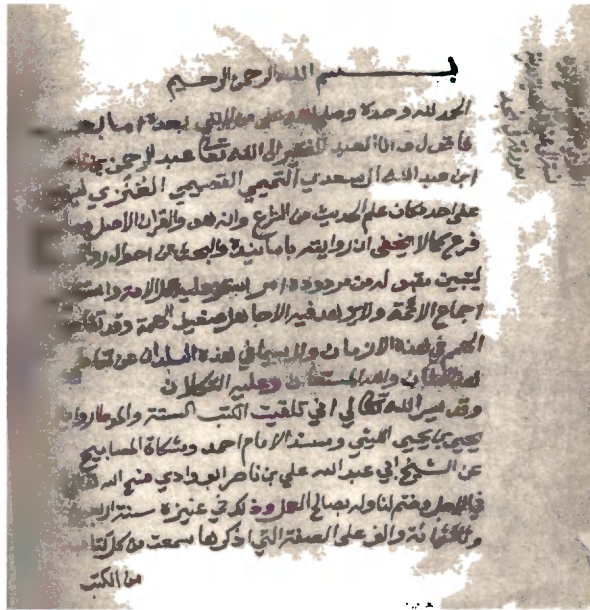 بسم الله الرحمن الرحيم
الحمد لله وحده وصلى الله وسلم على من لا نبي بعده اما بعد
فاقول وانا العبد الفقير الى الله تعالى عبد الرحمن بن ناصر
ابن عبد الله آل سعدي التميمي القصيمي العنزي
على احد مكان علم الحديث من الشرع وانه هو والقران الاصل
فرع كما لا يخفى ان روايته باسانيده والبحث عن احوال
ليتبين مقبوله من مردوده امر استمر عليه عمل الامة
اجماع الائمة ولا يزهد فيه الا جاهل صغير الهمة وقد
الهمم في هذه الازمان ولا سيما في هذه البلدان عن تعاطي
هذا الشان والله المستعان وعليه التكلان
وقد يسر الله تعالى لي اني تلقيت الكتب الستة والموطا رواية
يحيى بن يحيى الليثي ومسند الامام احمد ومشكاة المصابيح
عن الشيخ ابي عبد الله علي بن ناصر ابو وادي متع الله
في الاجل وختم لنا وله بصالح العمل وذلك في عنيزة سنة اربعين
وثلاثمائة والف على الصفة التي اذكرها سمعت من كل كتاب
من الكتب